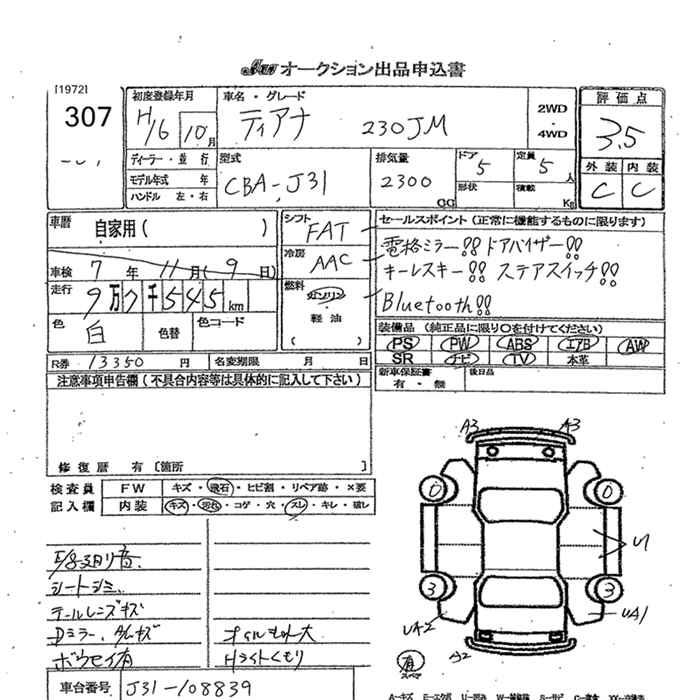 オークション出品申込書
[1972]
307
初度登録年月
H16 10月
車名・グレード
ティアナ 230JM
2WD
・
4WD
評価点
3.5
外装 内装
C C
ディーラー・並行
モデル年式 年
ハンドル 左・右
型式
CBA-J31
排気量
2300 CC
ドア
5
形状
定員
5人
積載 Kg
車歴
自家用( )
車検 7年 11月(9日)
走行 9万7千545km
色 白
色替
色コード
シフト
FAT
冷房
AAC
燃料
ガソリン
・
軽油
( )
セールスポイント(正常に機能するものに限ります)
電格ミラー!! ドアバイザー!!
キーレスキー!! ステアスイッチ!!
Bluetooth!!
装備品 (純正品に限り○を付けてください)
PS PW ABS エアB AW
SR ナビ TV 本革
新車保証書
有・無
後日品
R券 13350円
名変期限 月 日
注意事項申告欄(不具合内容等は具体的に記入して下さい)
修復歴 有 〔箇所 〕
検査員
記入欄
FW キズ・飛石・ヒビ割・リペア跡・×要
内装 キズ・汚れ・コゲ・穴・スレ・キレ・破レ
シートシミ
テールレンズキズ
Dミラー、
ボウセイ有
オイルもれ大
Hライトくもり
A3 A3
0 0
U
3 3
UA2 UA1
有
スペア
車台番号 J31-108839